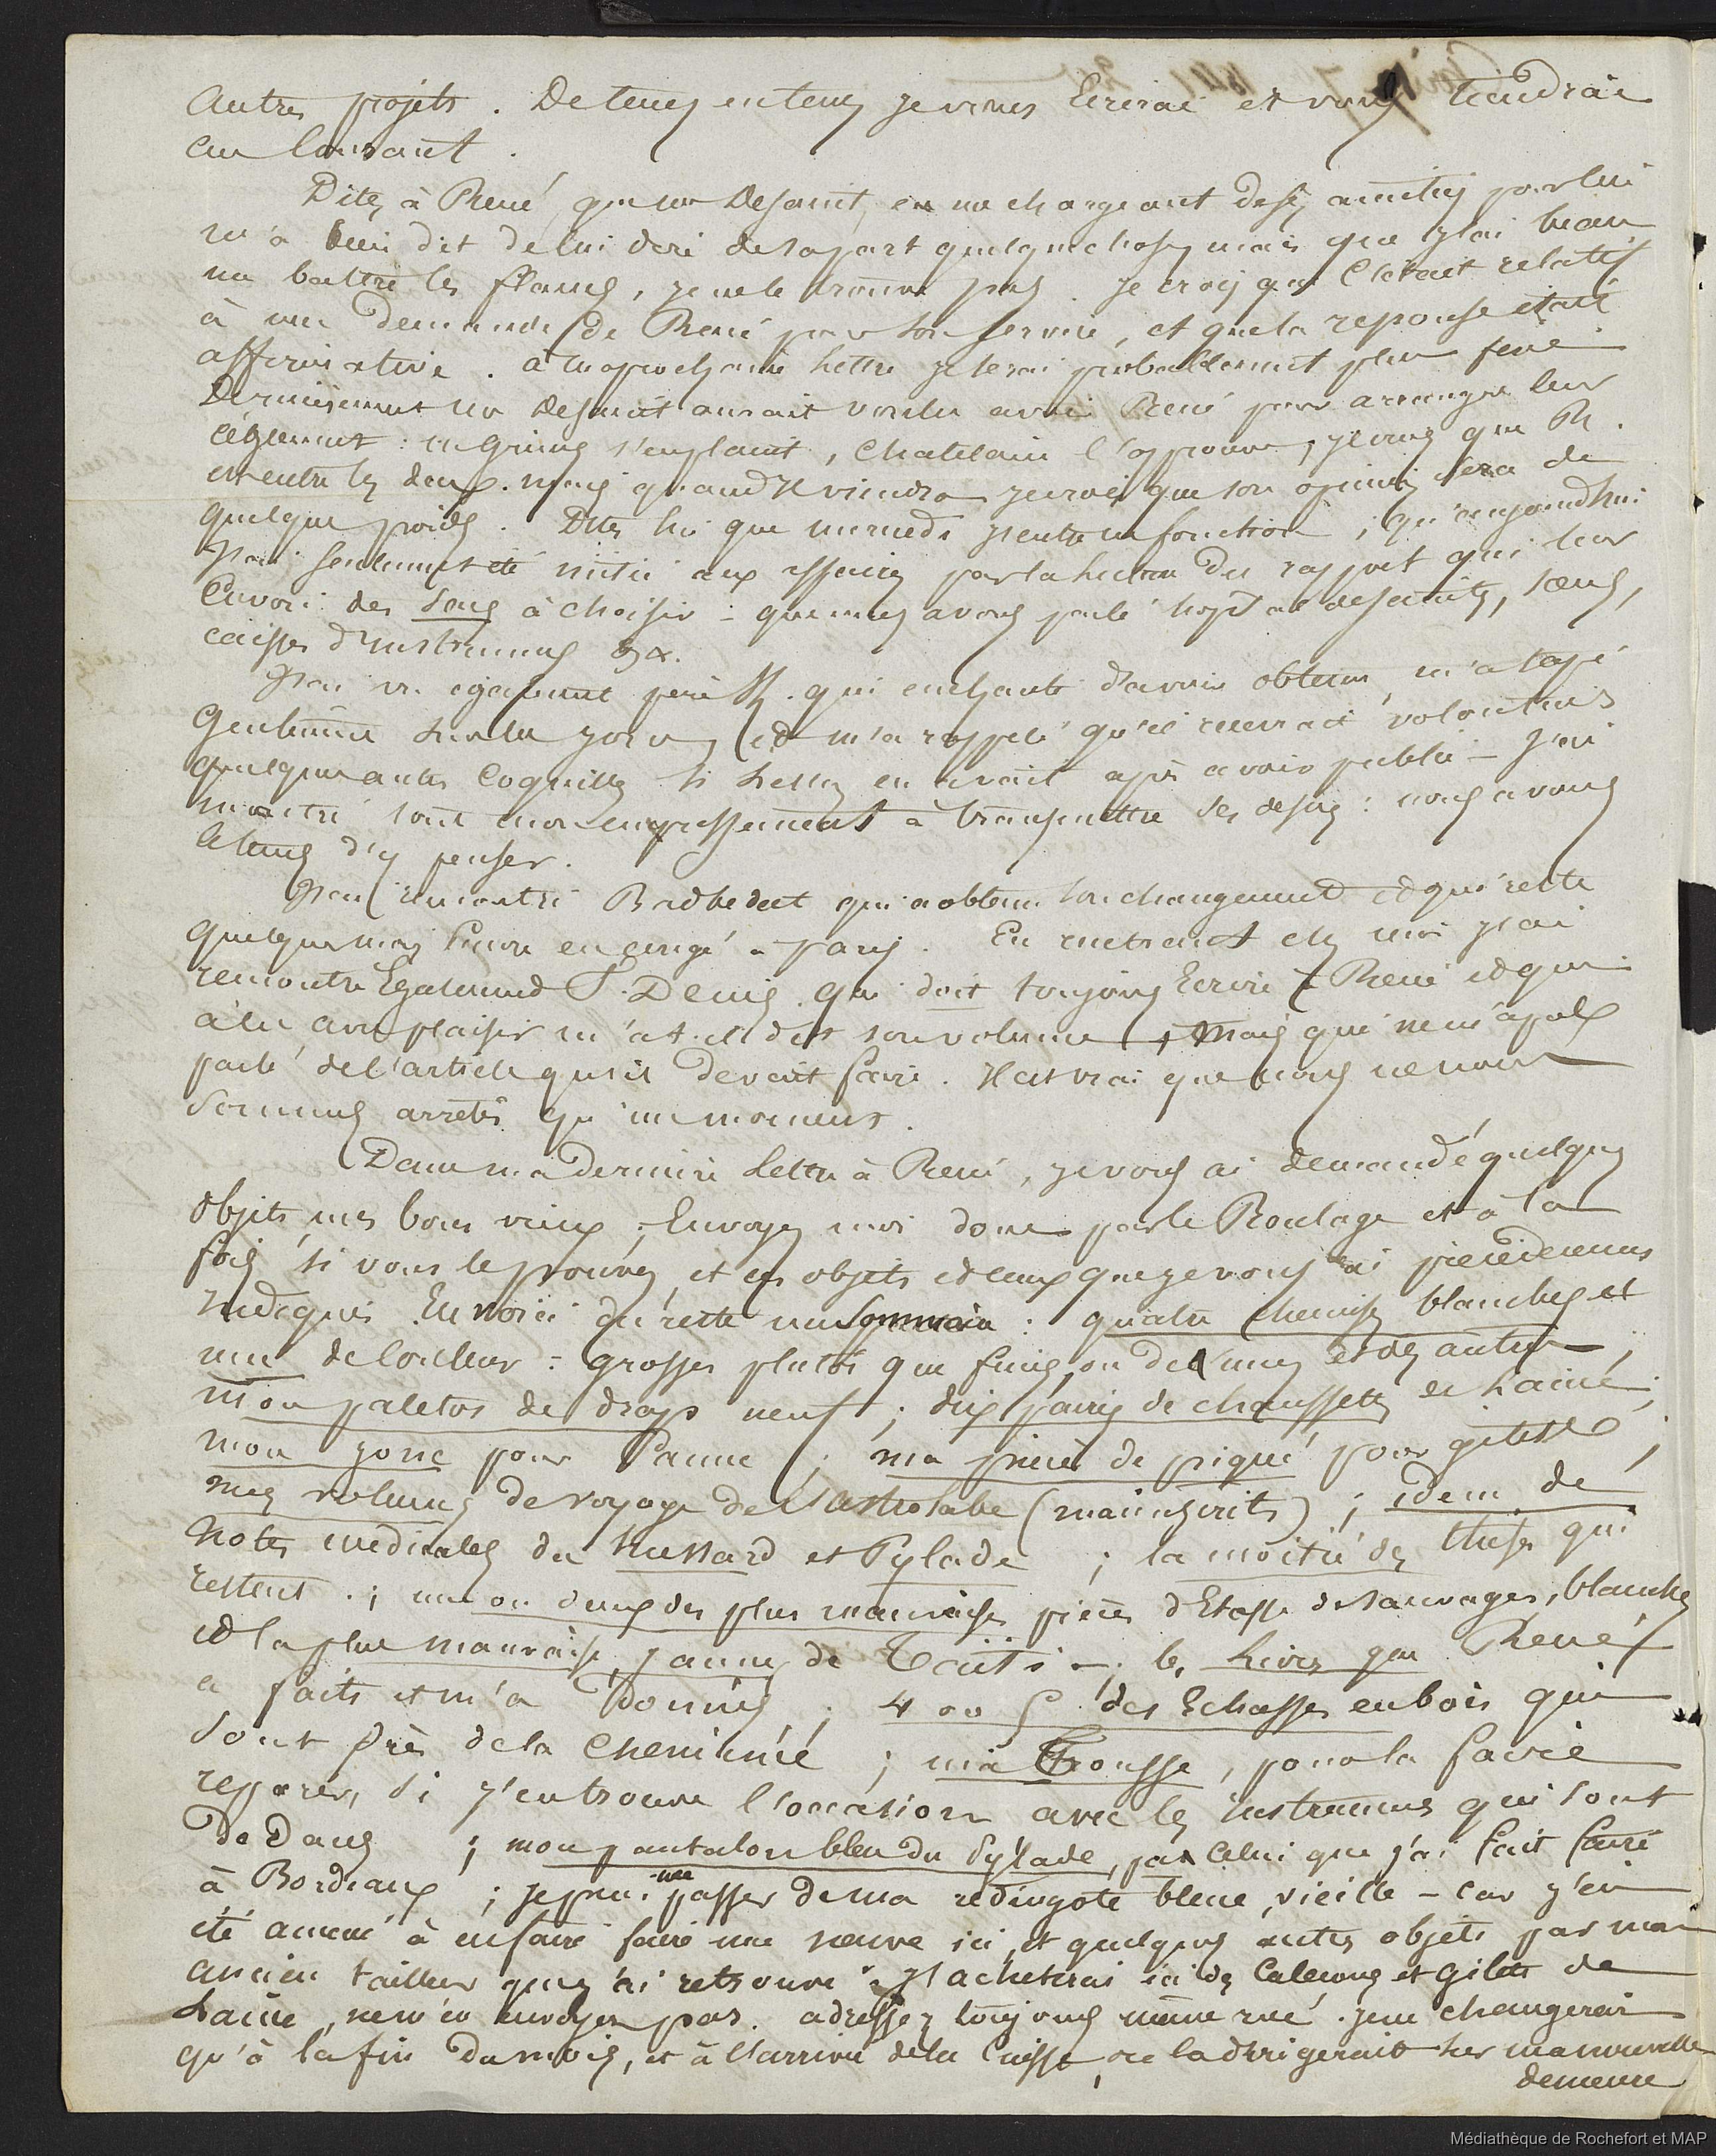 autres projets. De tems en tems je vous Ecrirai et vous tiendrai
au Courant.
Dites à René que mr Dejanit, en me chargeant de ses amitiés pour lui
m'a bien dit de lui dire de sa part quelque chose, mais que j'ai beau
me battre les flancs, je ne le trouve pas. Je crois que C'était relatif
à une demande de René pour son service, et que la reponse était
affirmative. à ma prochaine lettre je serai probablement plus
Dernièrement mr aurait voulu avoir René pour arranger leur
règlement : s'en plaint, Chatelain l'approuve ; je crois que R.
est entre les deux. Mais quand il viendra je crois que son opinion sera de
quelque poids. Dites lui que mercredi j'entre en fonction ; qu'aujourdhui
j'ai seulement été initié aux affaires par la lecture du rapport qui leur
Envoi des à choisir : que nous avons parlé hopital sœurs,
caisses d'instrumens &x.
J'ai vu également père R. qui enchanté d'avoir obtenu, m'a tapé
sur la joue et m'a rappelé qu'il recevrait volontiers
quelques autres Coquilles si Lesson en avait après avoir publié — J'ai
montré tout mon empressement à transmettre ses désirs : nous avons
le tems d'y penser.
J'ai rencontré qui a obtenu son changement et qui reste
quelques mois Encore en congé à Paris. En rentrant chez moi j'ai
rencontré Egalement F. Denis. qui doit toujours Ecrire à René et qui
a lu avec plaisir m'a t-il dit son volume, mais qui ne m'a pas
parlé de l'article qu'il devait faire. Il est vrai que nous ne nous
sommes arrêtés qu'un moment.
Dans ma dernière lettre à René, je vous ai demandé quelques
objets mes bons vieux ; Envoyez moi donc par le Roulage et à la
fois si vous le pouvez, et ces objets et ceux que je vous ai précédemment
indiqués. En voici du reste un sommaire : quatre chemises blanches et
une de Couleur : grosses plutôt que fines, ou des unes et des autres ;
mon paletos de drap neuf ; dix paires de chaussettes de Laine ;
mon jonc pour Canne ; ma pièce de piqué pour gilet ;
mes volumes de voyage de l'Astrolabe (manuscrits) ; idem de
notes medicales du Hussard et Pylade ; la moitié des thèses qui
restent ; une ou deux des plus mauvaises pièces d'Etoffe de sauvages, blanche,
et la plus mauvaise, jaune, de Taïti — ; les livres que René
a faits et m'a donnés ; 4 ou 5 des Echasses en bois qui
sont près de la cheminée ; ma Trousse, pour la faire
reparer, si j'en trouve l'occasion avec les instrumens qui sont
dedans ; mon pantalon bleu du Pylade, pas celui que j'ai fait faire
à Bordeaux ; je puis me passer de ma redingote bleue, vieille — car j'ai
été amené à en faire faire une neuve ici, et quelques autres objets par mon
ancien tailleur que j'ai retrouvé. J'acheterai ici des Caleçons et gilets de
Laine, ne m'en envoyez pas. adressez toujours même rue. je ne changerai
qu'à la fin du mois, et à l'arrivée de la Caisse, on la dirigerait sur ma nouvelle
demeure
Médiathèque de Rochefort et MAP